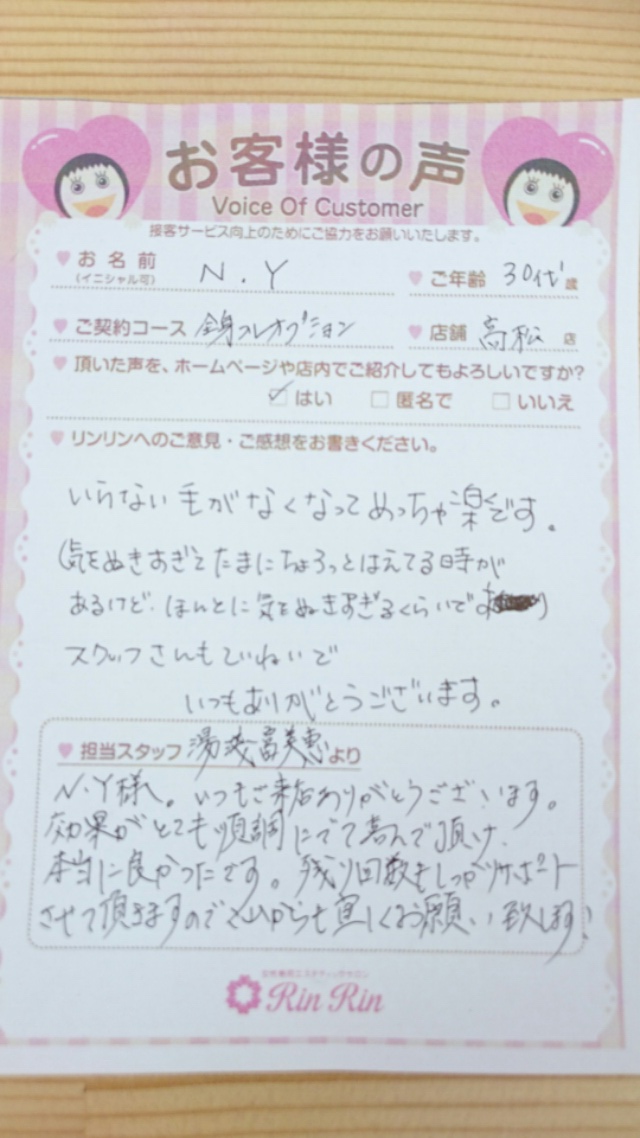 お客様の声
Voice Of Customer
接客サービス向上のためにご協力をお願いいたします。
お名前 N.Y ご年齢 30代 歳
(イニシャル可)
ご契約コース 全身 オプション 店舗 高松 店
頂いた声を、ホームページや店内でご紹介してもよろしいですか?
はい 匿名で いいえ
リンリンへのご意見・ご感想をお書きください。
いらない毛がなくなってめっちゃ楽です。
(気をぬきすぎてたまにちょろっとはえてる時が
あるけど、ほんとに気をぬきすぎるくらいです)
スタッフさんもていねいで
いつもありがとうございます。
担当スタッフ 湯浅富美恵より
N.Y様へ。いつもご来店ありがとうございます。
効果がとても順調にでて喜んで頂け、
本当に良かったです。残り回数もしっかりサポート
させて頂きますのでこれからも宜しくお願い致します!
女性専用エステティックサロン
Rin Rin